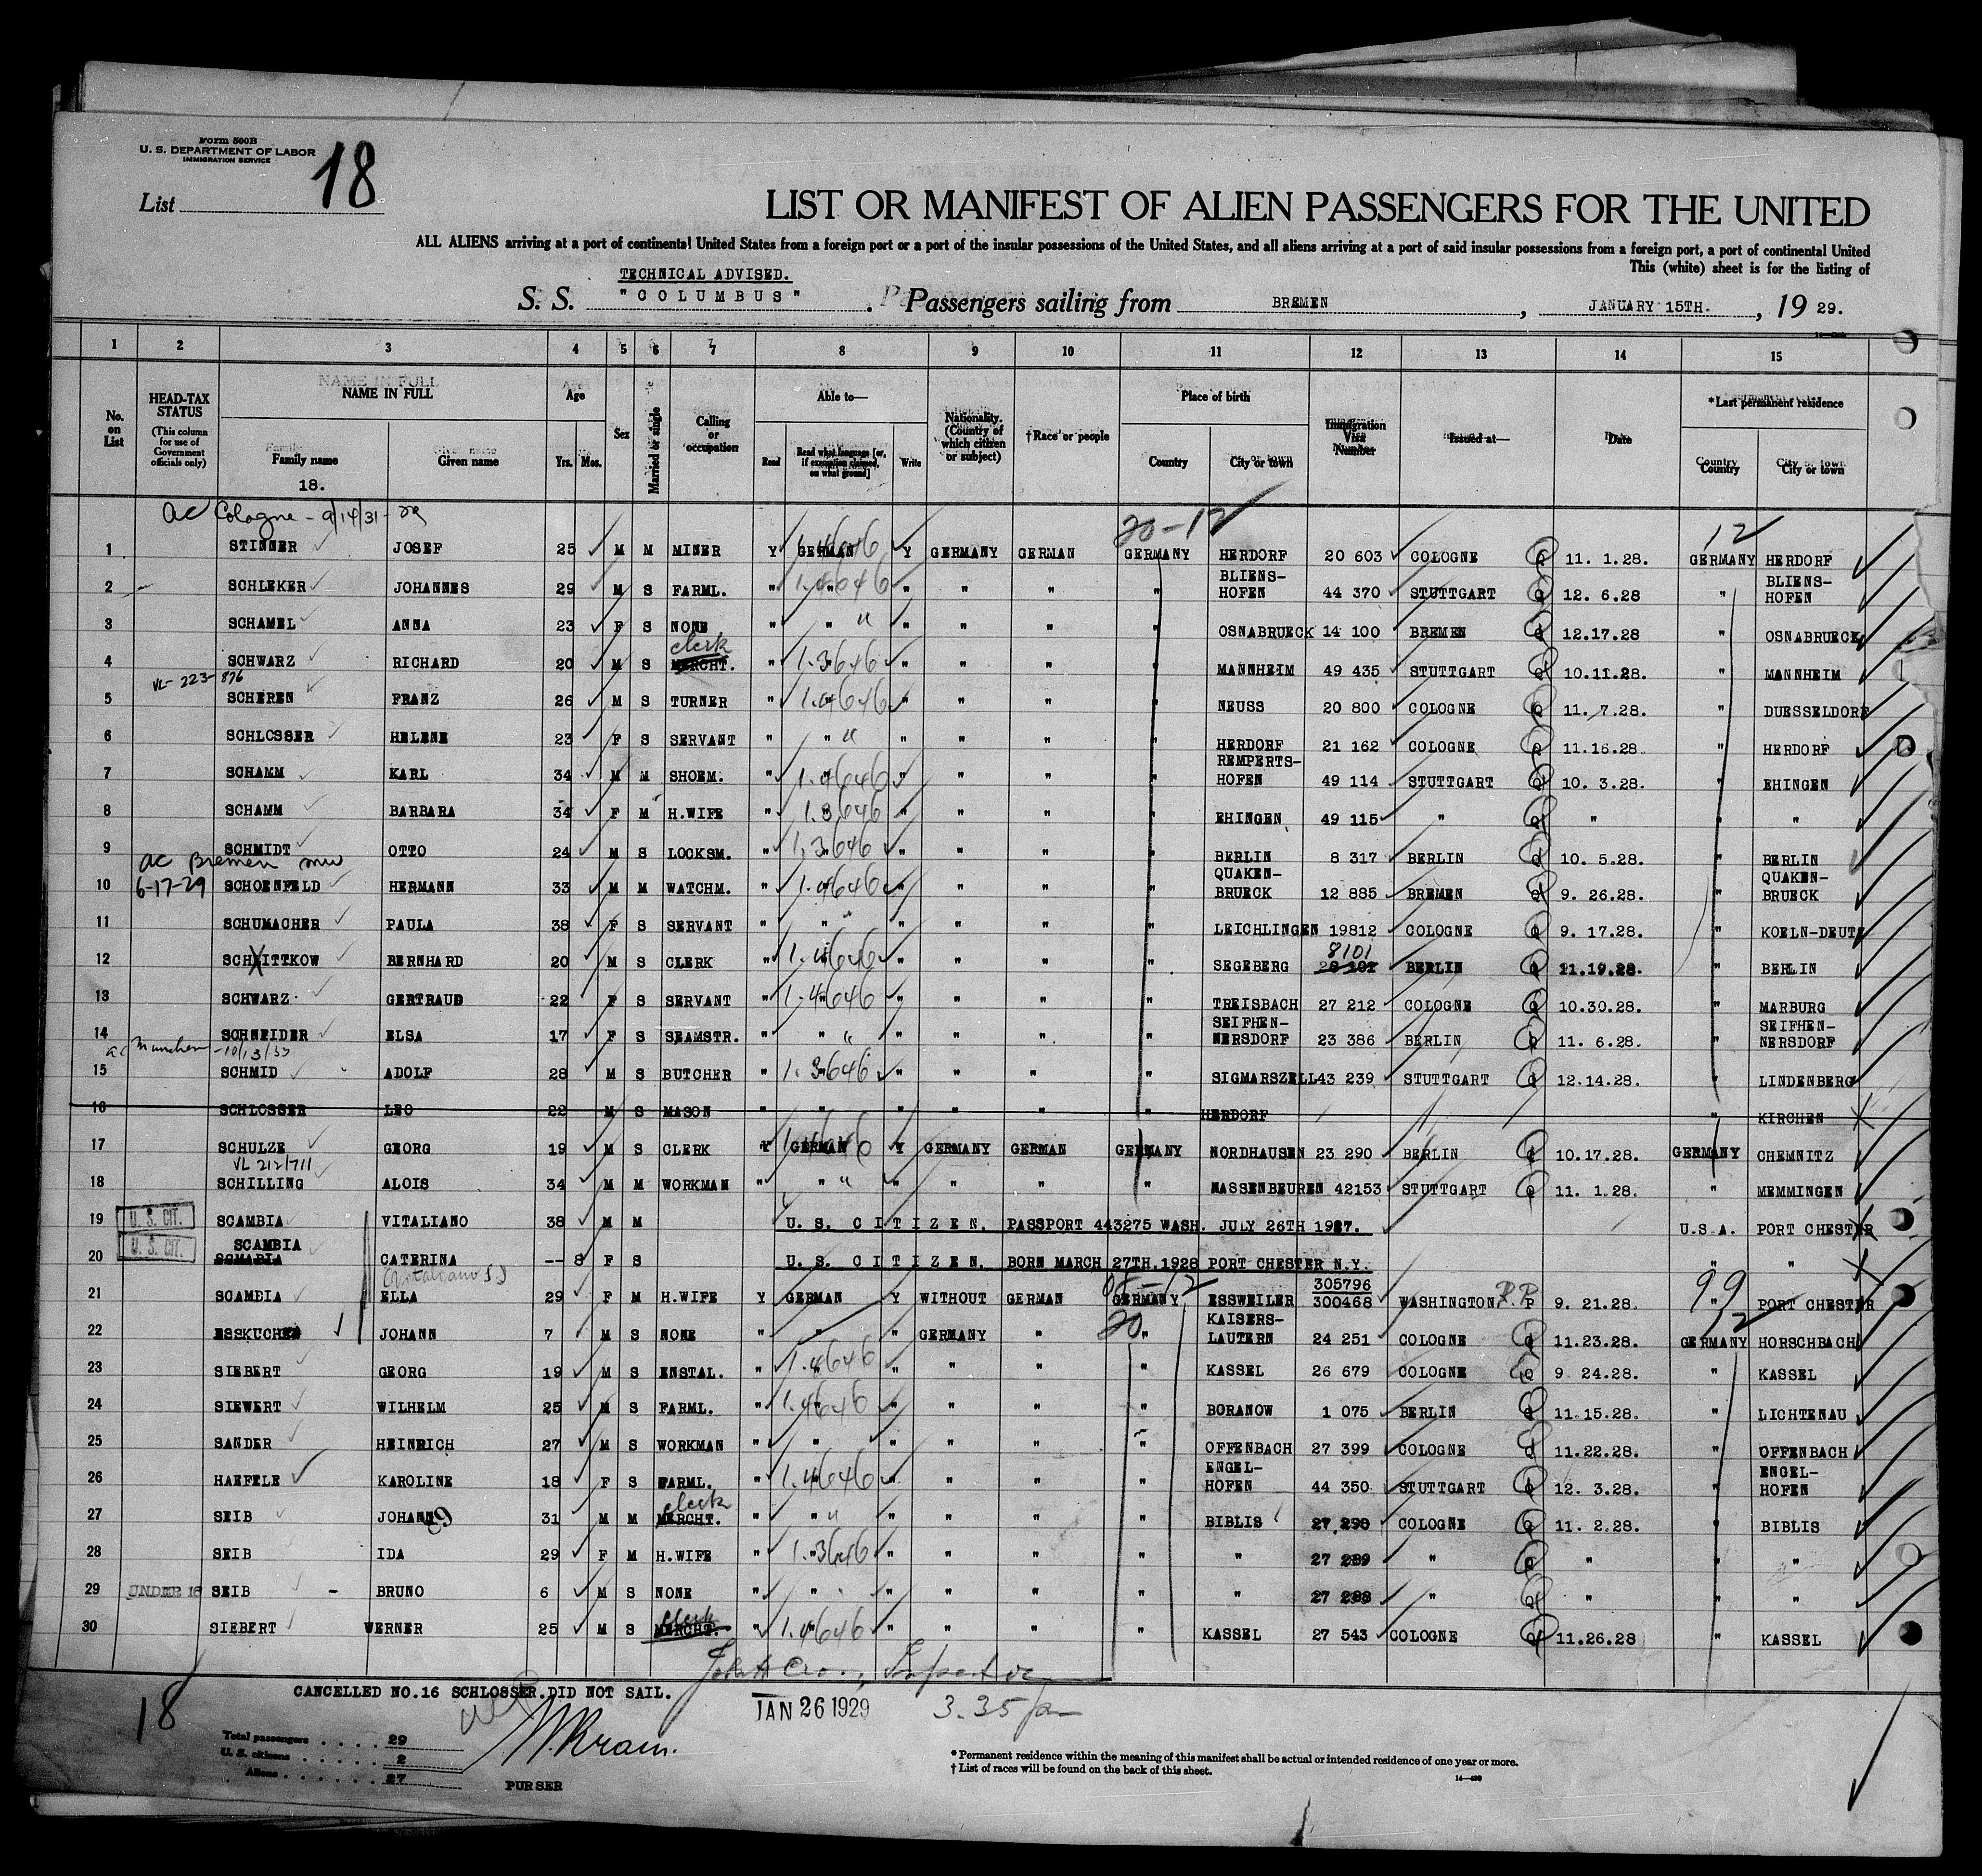 Form 500B
U. S. DEPARTMENT OF LABOR
IMMIGRATION SERVICE
List 18
LIST OR MANIFEST OF ALIEN PASSENGERS FOR THE UNITED
ALL ALIENS arriving at a port of continental United States from a foreign port or a port of the insular possessions of the United States, and all aliens arriving at a port of said insular possessions from a foreign port, a port of continental United
This (white) sheet is for the listing of
TECHNICAL ADVISED.
S. S. "COLUMBUS". Passengers sailing from BREMEN, JANUARY 15TH., 19 29.
1 2 3 4 5 6 7 8 9 10 11 12 13 14 15
No. on List
HEAD-TAX STATUS (This column for use of Government officials only)
NAME IN FULL
Family name
Given name
18.
Age
Yrs. Mos.
Sex
Married or single
Calling or occupation
Able to—
Read
Read what language [or, if exemption claimed, on what ground]
Write
Nationality. (Country of which citizen or subject)
† Race or people
Place of birth
Country
City or town
Immigration Visa Number
Issued at—
Date
*Last permanent residence
Country
City or town
ac Cologne - 9/14/31 -
20-12 12
1 STINNER JOSEF 25 M M MINER Y GERMAN Y GERMANY GERMAN GERMANY HERDORF 20 603 COLOGNE 11. 1.28. GERMANY HERDORF
2 SCHLEKER JOHANNES 29 M S FARML. " " " " " " BLIENS-HOFEN 44 370 STUTTGART 12. 6.28 " BLIENS-HOFEN
3 SCHAMEL ANNA 23 F S NONE " " " " " " OSNABRUECK 14 100 BREMEN 12.17.28 " OSNABRUECK
4 SCHWARZ RICHARD 20 M S MERCHT. clerk " 1.3646 " " " " MANNHEIM 49 435 STUTTGART 10.11.28. " MANNHEIM
VL-223-876
5 SCHEREN FRANZ 26 M S TURNER " " " " " " NEUSS 20 800 COLOGNE 11. 7.28. " DUESSELDORF
6 SCHLOSSER HELENE 23 F S SERVANT " " " " " " HERDORF 21 162 COLOGNE 11.16.28. " HERDORF
7 SCHAMM KARL 34 M M SHOEM. " " " " " " REMPERTS-HOFEN 49 114 STUTTGART 10. 3.28. " EHINGEN
8 SCHAMM BARBARA 34 F M H.WIFE 1.3646 " " " " EHINGEN 49 115 " " " "
9 SCHMIDT OTTO 24 M S LOCKSM. " 1.3646 " " " " BERLIN 8 317 BERLIN 10. 5.28. " BERLIN
ac Bremen
6-17-29
10 SCHOENFELD HERMANN 33 M M WATCHM. " 1.4646 " " " " QUAKEN-BRUECK 12 885 BREMEN 9. 26.28. " QUAKEN-BRUECK
11 SCHUMACHER PAULA 38 F S SERVANT " " " " " " LEICHLINGEN 19812 COLOGNE 9. 17.28. " KOELN-DEUTZ
12 SCHXITTKOW BERNHARD 20 M S CLERK " 1.4646 " " " " SEGEBERG 8101 BERLIN 11.19.28. " BERLIN
13 SCHWARZ GERTRAUD 22 F S SERVANT " 1.4646 " " " " TREISBACH 27 212 COLOGNE 10.30.28. " MARBURG
14 SCHNEIDER ELSA 17 F S SEAMSTR. " " " " " " SEIFHEN-NERSDORF 23 386 BERLIN 11. 6.28. " SEIFHEN-NERSDORF
ac Munchen - 10/13/33
15 SCHMID ADOLF 28 M S BUTCHER " 1.3646 " " " " SIGMARSZELL 43 239 STUTTGART 12.14.28. " LINDENBERG
16 SCHLOSSER LEO 22 M S MASON " " " " " " HERDORF " KIRCHEN
17 SCHULZE GEORG 19 M S CLERK Y GERMAN Y GERMANY GERMAN GERMANY NORDHAUSEN 23 290 BERLIN 10.17.28. GERMANY CHEMNITZ
VL 212/711
18 SCHILLING ALOIS 34 M M WORKMAN " " " " " " MASSENBEUREN 42153 STUTTGART 11. 1.28. " MEMMINGEN
19 U. S. CIT. SCAMBIA VITALIANO 38 M M U. S. CITIZEN. PASSPORT 443275 WASH. JULY 26TH 1927. U.S.A. PORT CHESTER
20 U. S. CIT. SCAMBIA CATERINA -- 8 F S U. S. CITIZEN. BORN MARCH 27TH.1928 PORT CHESTER N.Y. " "
21 SCAMBIA ELLA 29 F M H.WIFE Y GERMAN Y WITHOUT GERMAN GERMANY ESSWEILER 305796 300468 WASHINGTON R.P. 9. 21.28. 99 " PORT CHESTER
22 ESSKUCHEN JOHANN 7 M S NONE " " " GERMANY " 20 " KAISERS-LAUTERN 24 251 COLOGNE 11.23.28. GERMANY HORSCHBACH
23 SIEBERT GEORG 19 M S ENSTAL. " 1.4646 " " " " KASSEL 26 679 COLOGNE 9 24.28. " KASSEL
24 SIEWERT WILHELM 25 M S FARML. " 1.4646 " " " " BORANOW 1 075 BERLIN 11.15.28. " LICHTENAU
25 SANDER HEINRICH 27 M S WORKMAN " " " " " " OFFENBACH 27 399 COLOGNE 11.22.28. " OFFENBACH
26 HAEFELE KAROLINE 18 F S FARML. " 1.4646 " " " " ENGEL-HOFEN 44 350 STUTTGART 12. 3.28. " ENGEL-HOFEN
27 SEIB JOHANN 31 M M MERCHT. clerk " " " " " " BIBLIS 27 290 COLOGNE 11. 2.28. " BIBLIS
28 SEIB IDA 29 F M H.WIFE " 1.3646 " " " " " 27 289 " " " "
29 UNDER 16 SEIB - BRUNO 6 M S NONE " " " " " " " 27 288 " " " "
30 SIEBERT WERNER 25 M S MERCHT. clerk " 1.4646 " " " " KASSEL 27 543 COLOGNE 11.26.28 " KASSEL
CANCELLED NO.16 SCHLOSSER.DID NOT SAIL.
JAN 26 1929 3.35 pm
18
Total passengers . . . . 29
U. S. citizens . . . . . 2
Aliens . . . . . . 27
PURSER
* Permanent residence within the meaning of this manifest shall be actual or intended residence of one year or more.
† List of races will be found on the back of this sheet.